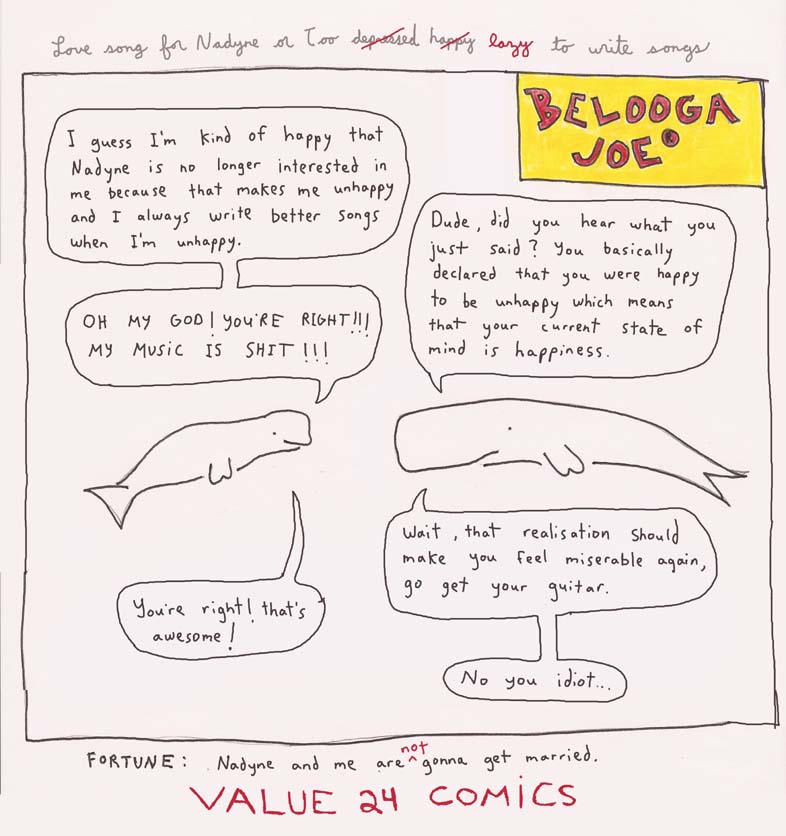 Love song for Nadyne or Too depressed happy lazy to write songs
BELOOGA
JOE®
I guess I'm kind of happy that
Nadyne is no longer interested in
me because that makes me unhappy
and I always write better songs
when I'm unhappy.
Dude, did you hear what you
just said? You basically
declared that you were happy
to be unhappy which means
that your current state of
mind is happiness.
OH MY GOD! YOU'RE RIGHT!!!
MY MUSIC IS SHIT!!!
Wait, that realisation should
make you feel miserable again,
go get your guitar.
You're right! that's
awesome!
No you idiot...
FORTUNE: Nadyne and me are not gonna get married.
VALUE 24 COMICS